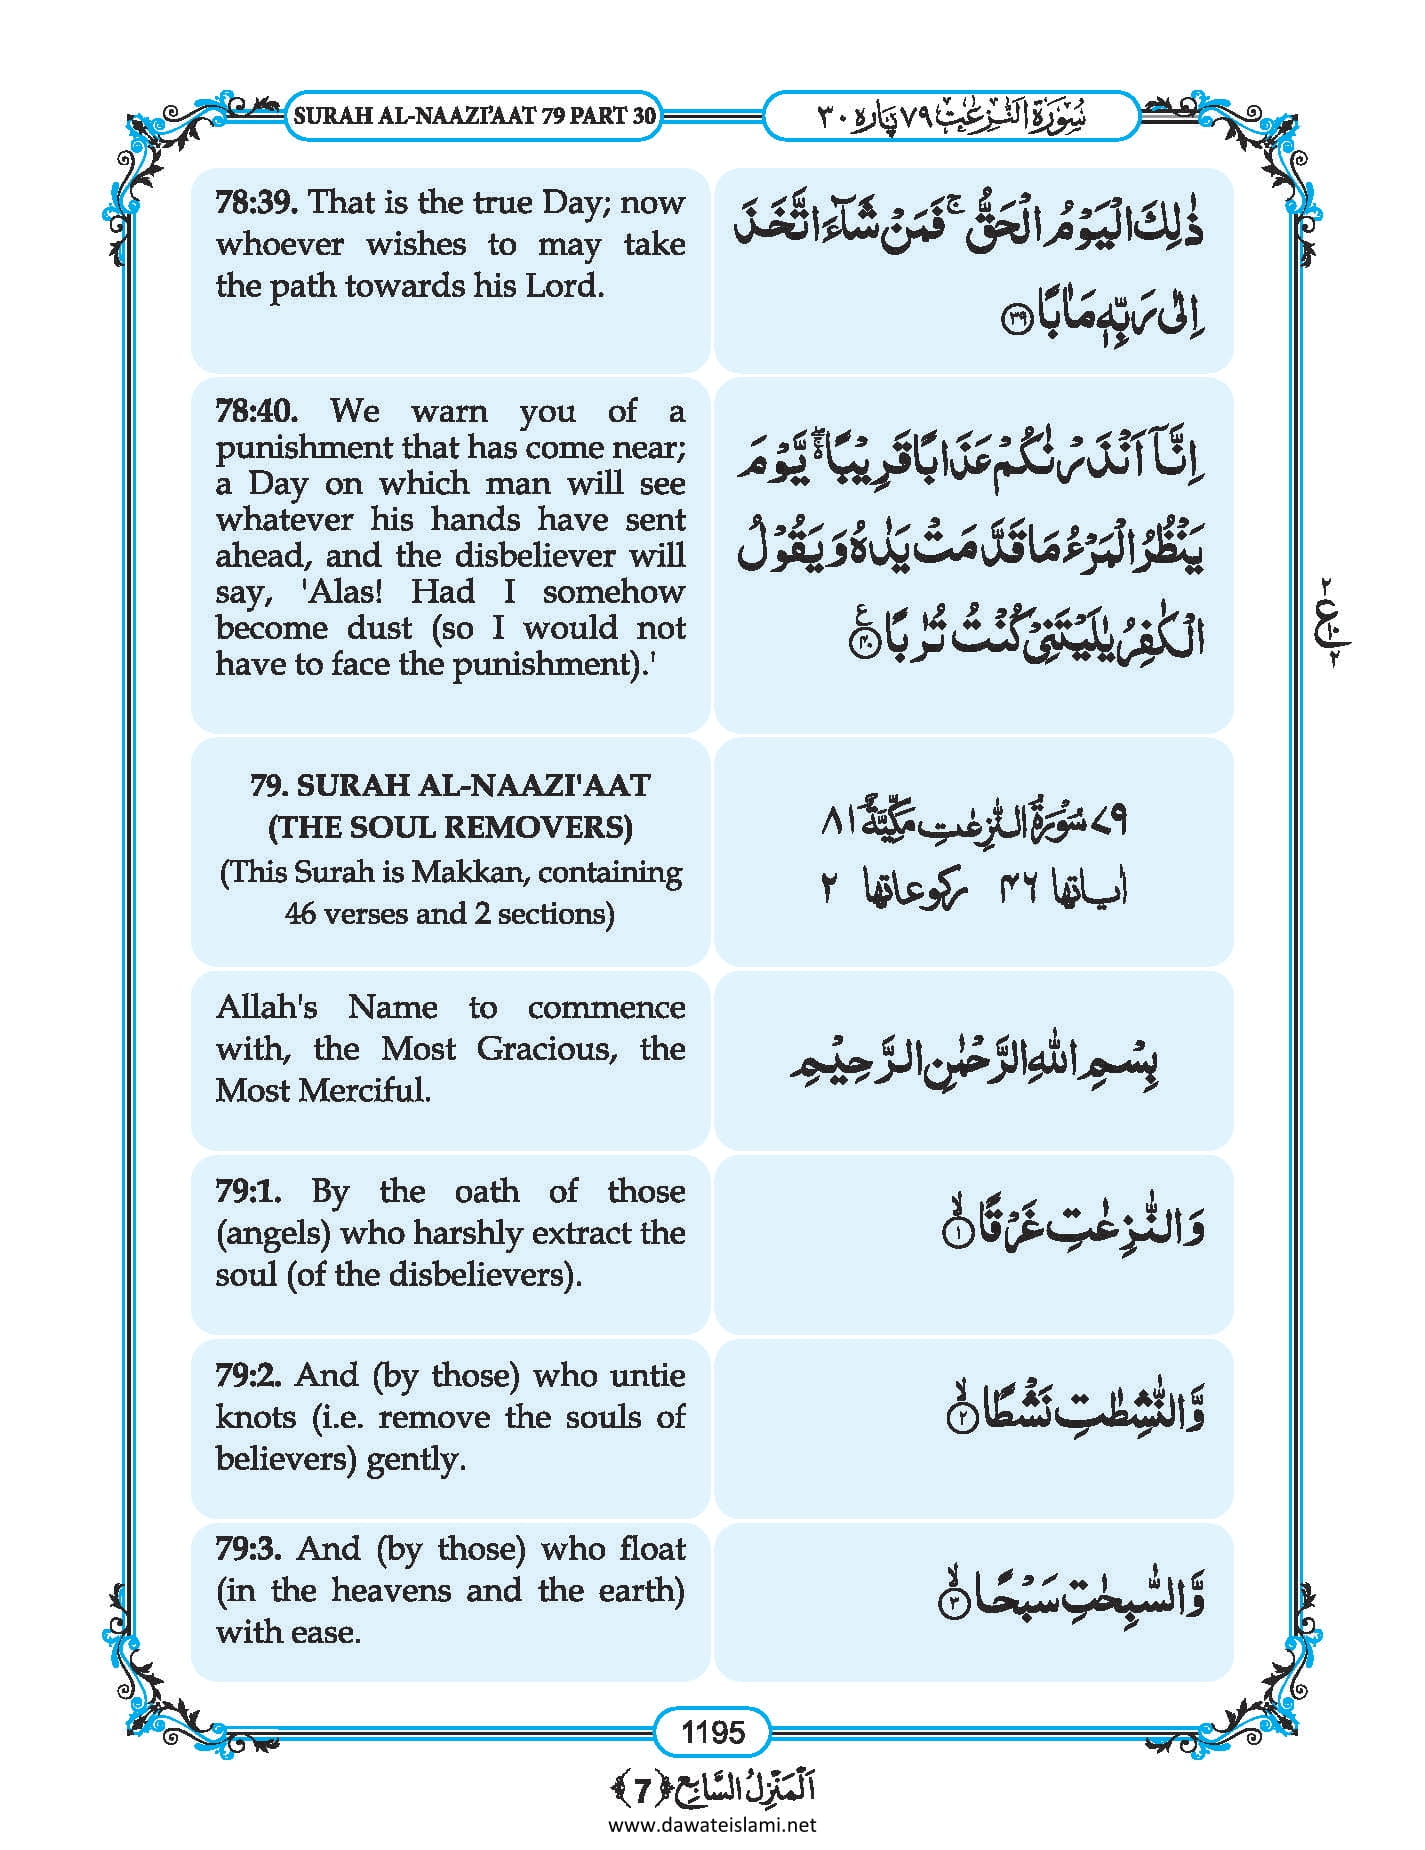 SURAH AL-NAAZI’AAT 79 PART 30
سُوْرَةُ النّٰزِعٰتِ ٧٩ پَارہ ٣٠
78:39. That is the true Day; now
whoever wishes to may take
the path towards his Lord.
ذٰلِكَ الْیَوْمُ الْحَقُّ ۚ فَمَنْ شَآءَ اتَّخَذَ
اِلٰی رَبِّهٖ مَاٰبًا ﴿۳۹﴾
78:40. We warn you of a
punishment that has come near;
a Day on which man will see
whatever his hands have sent
ahead, and the disbeliever will
say, 'Alas! Had I somehow
become dust (so I would not
have to face the punishment).'
اِنَّاۤ اَنْذَرْنٰكُمْ عَذَابًا قَرِیْبًا ۖۚ یَّوْمَ
یَنْظُرُ الْمَرْءُ مَا قَدَّمَتْ یَدٰهُ وَ یَقُوْلُ
الْكٰفِرُ یٰلَیْتَنِیْ كُنْتُ تُرٰبًا ﴿۴۰﴾ ع
٢
ع
١٠
٢
79. SURAH AL-NAAZI'AAT
(THE SOUL REMOVERS)
(This Surah is Makkan, containing
46 verses and 2 sections)
٧٩ سُوْرَةُ النّٰزِعٰتِ مَكِّیَّةٌ ٨١
اٰیاتها ۴۶ ركوعاتها ٢
Allah's Name to commence
with, the Most Gracious, the
Most Merciful.
بِسْمِ اللّٰهِ الرَّحْمٰنِ الرَّحِیْمِ
79:1. By the oath of those
(angels) who harshly extract the
soul (of the disbelievers).
وَ النّٰزِعٰتِ غَرْقًا ۙ﴿۱﴾
79:2. And (by those) who untie
knots (i.e. remove the souls of
believers) gently.
وَّ النّٰشِطٰتِ نَشْطًا ۙ﴿۲﴾
79:3. And (by those) who float
(in the heavens and the earth)
with ease.
وَّ السّٰبِحٰتِ سَبْحًا ۙ﴿۳﴾
1195
اَلْمَنْزِلُ السَّابِع ﴿7﴾
www.dawateislami.net